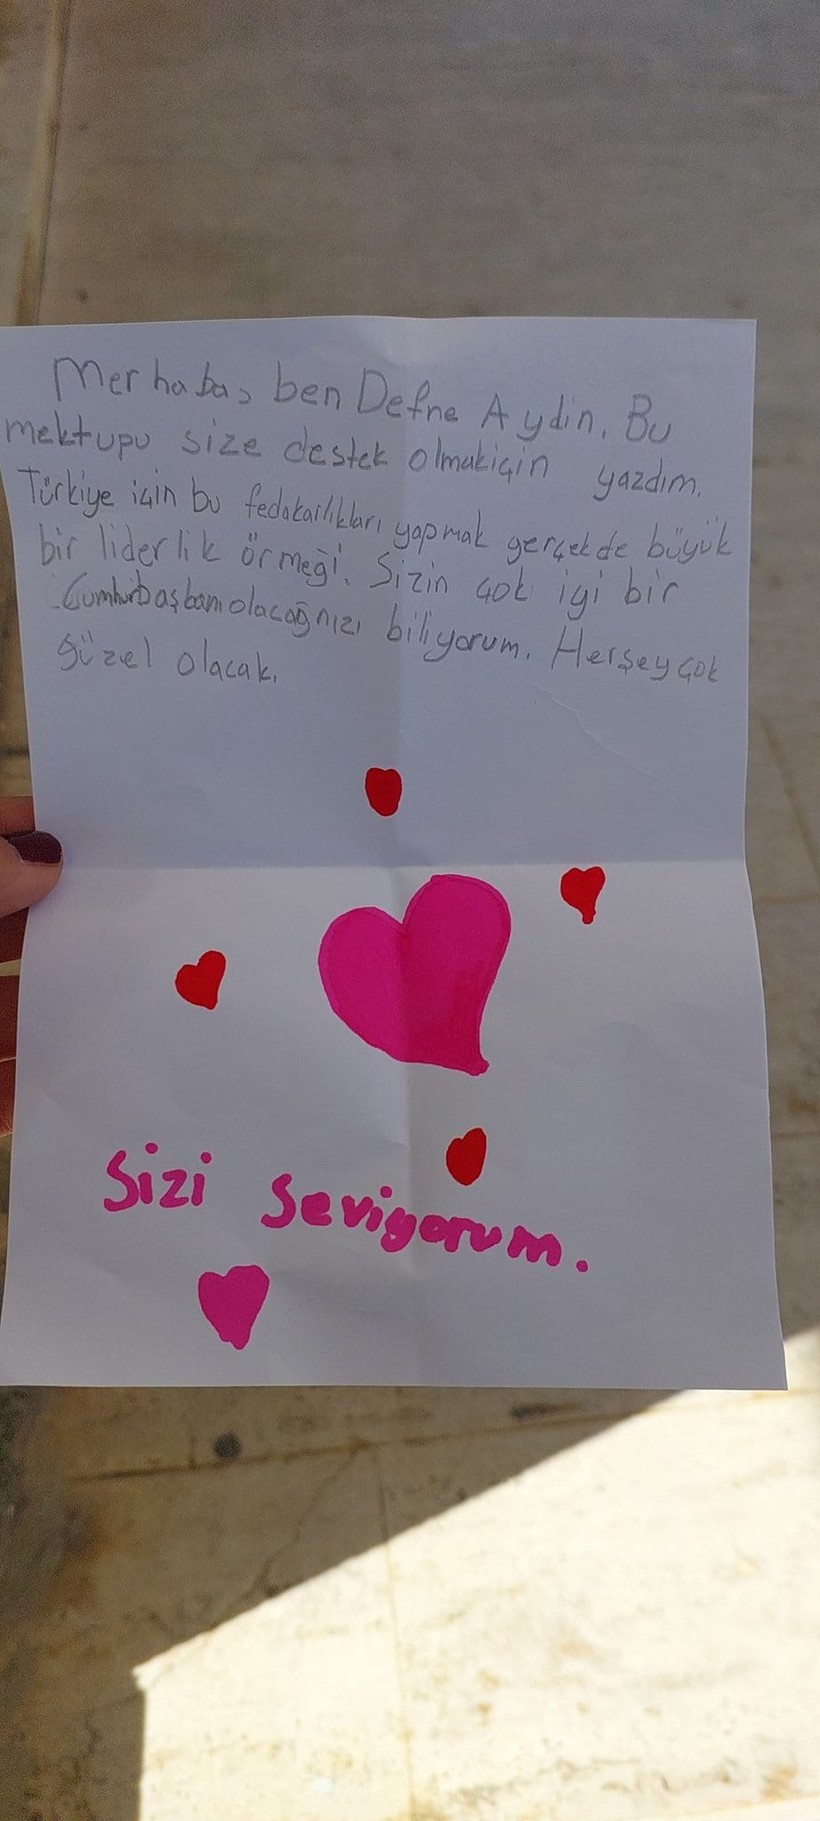 Merhaba, ben Defne Aydın. Bu
mektupu size destek olmakiçin yazdım.
Türkiye için bu fedakarlıkları yapmak gerçekde büyük
bir liderlik örmeği. Sizin çok iyi bir
Cumhurbaşbanı olacağnızı biliyorum. Herşey çok
güzel olacak.
Sizi Seviyorum.